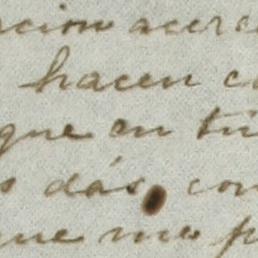 cion acerc
hacen c
que en ti
s dás con
que me p